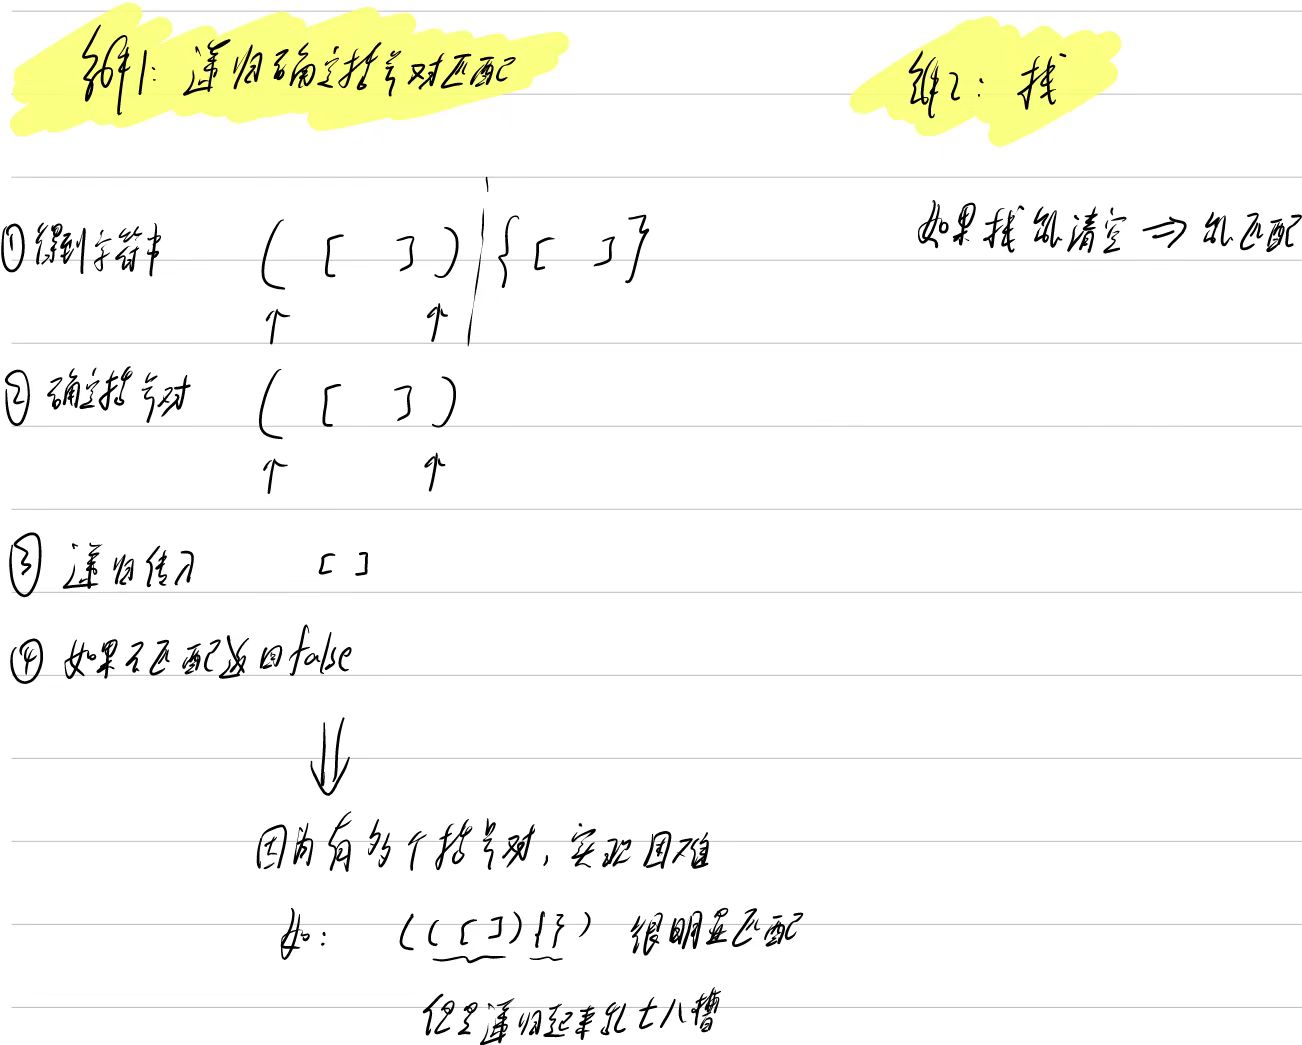 解1：递归确定括号对匹配
① 得到字符串 ( [ ] ) | { [ ] }
↑ ↑
② 确定括号对 ( [ ] )
↑ ↑
③ 递归传入 [ ]
④ 如果不匹配返回false
⇓
因为有多个括号对，实现困难
如： ( ( [ ] ) { } ) 很明显匹配
但是递归起来乱七八糟
解2：栈
如果栈能清空 ⇒ 能匹配